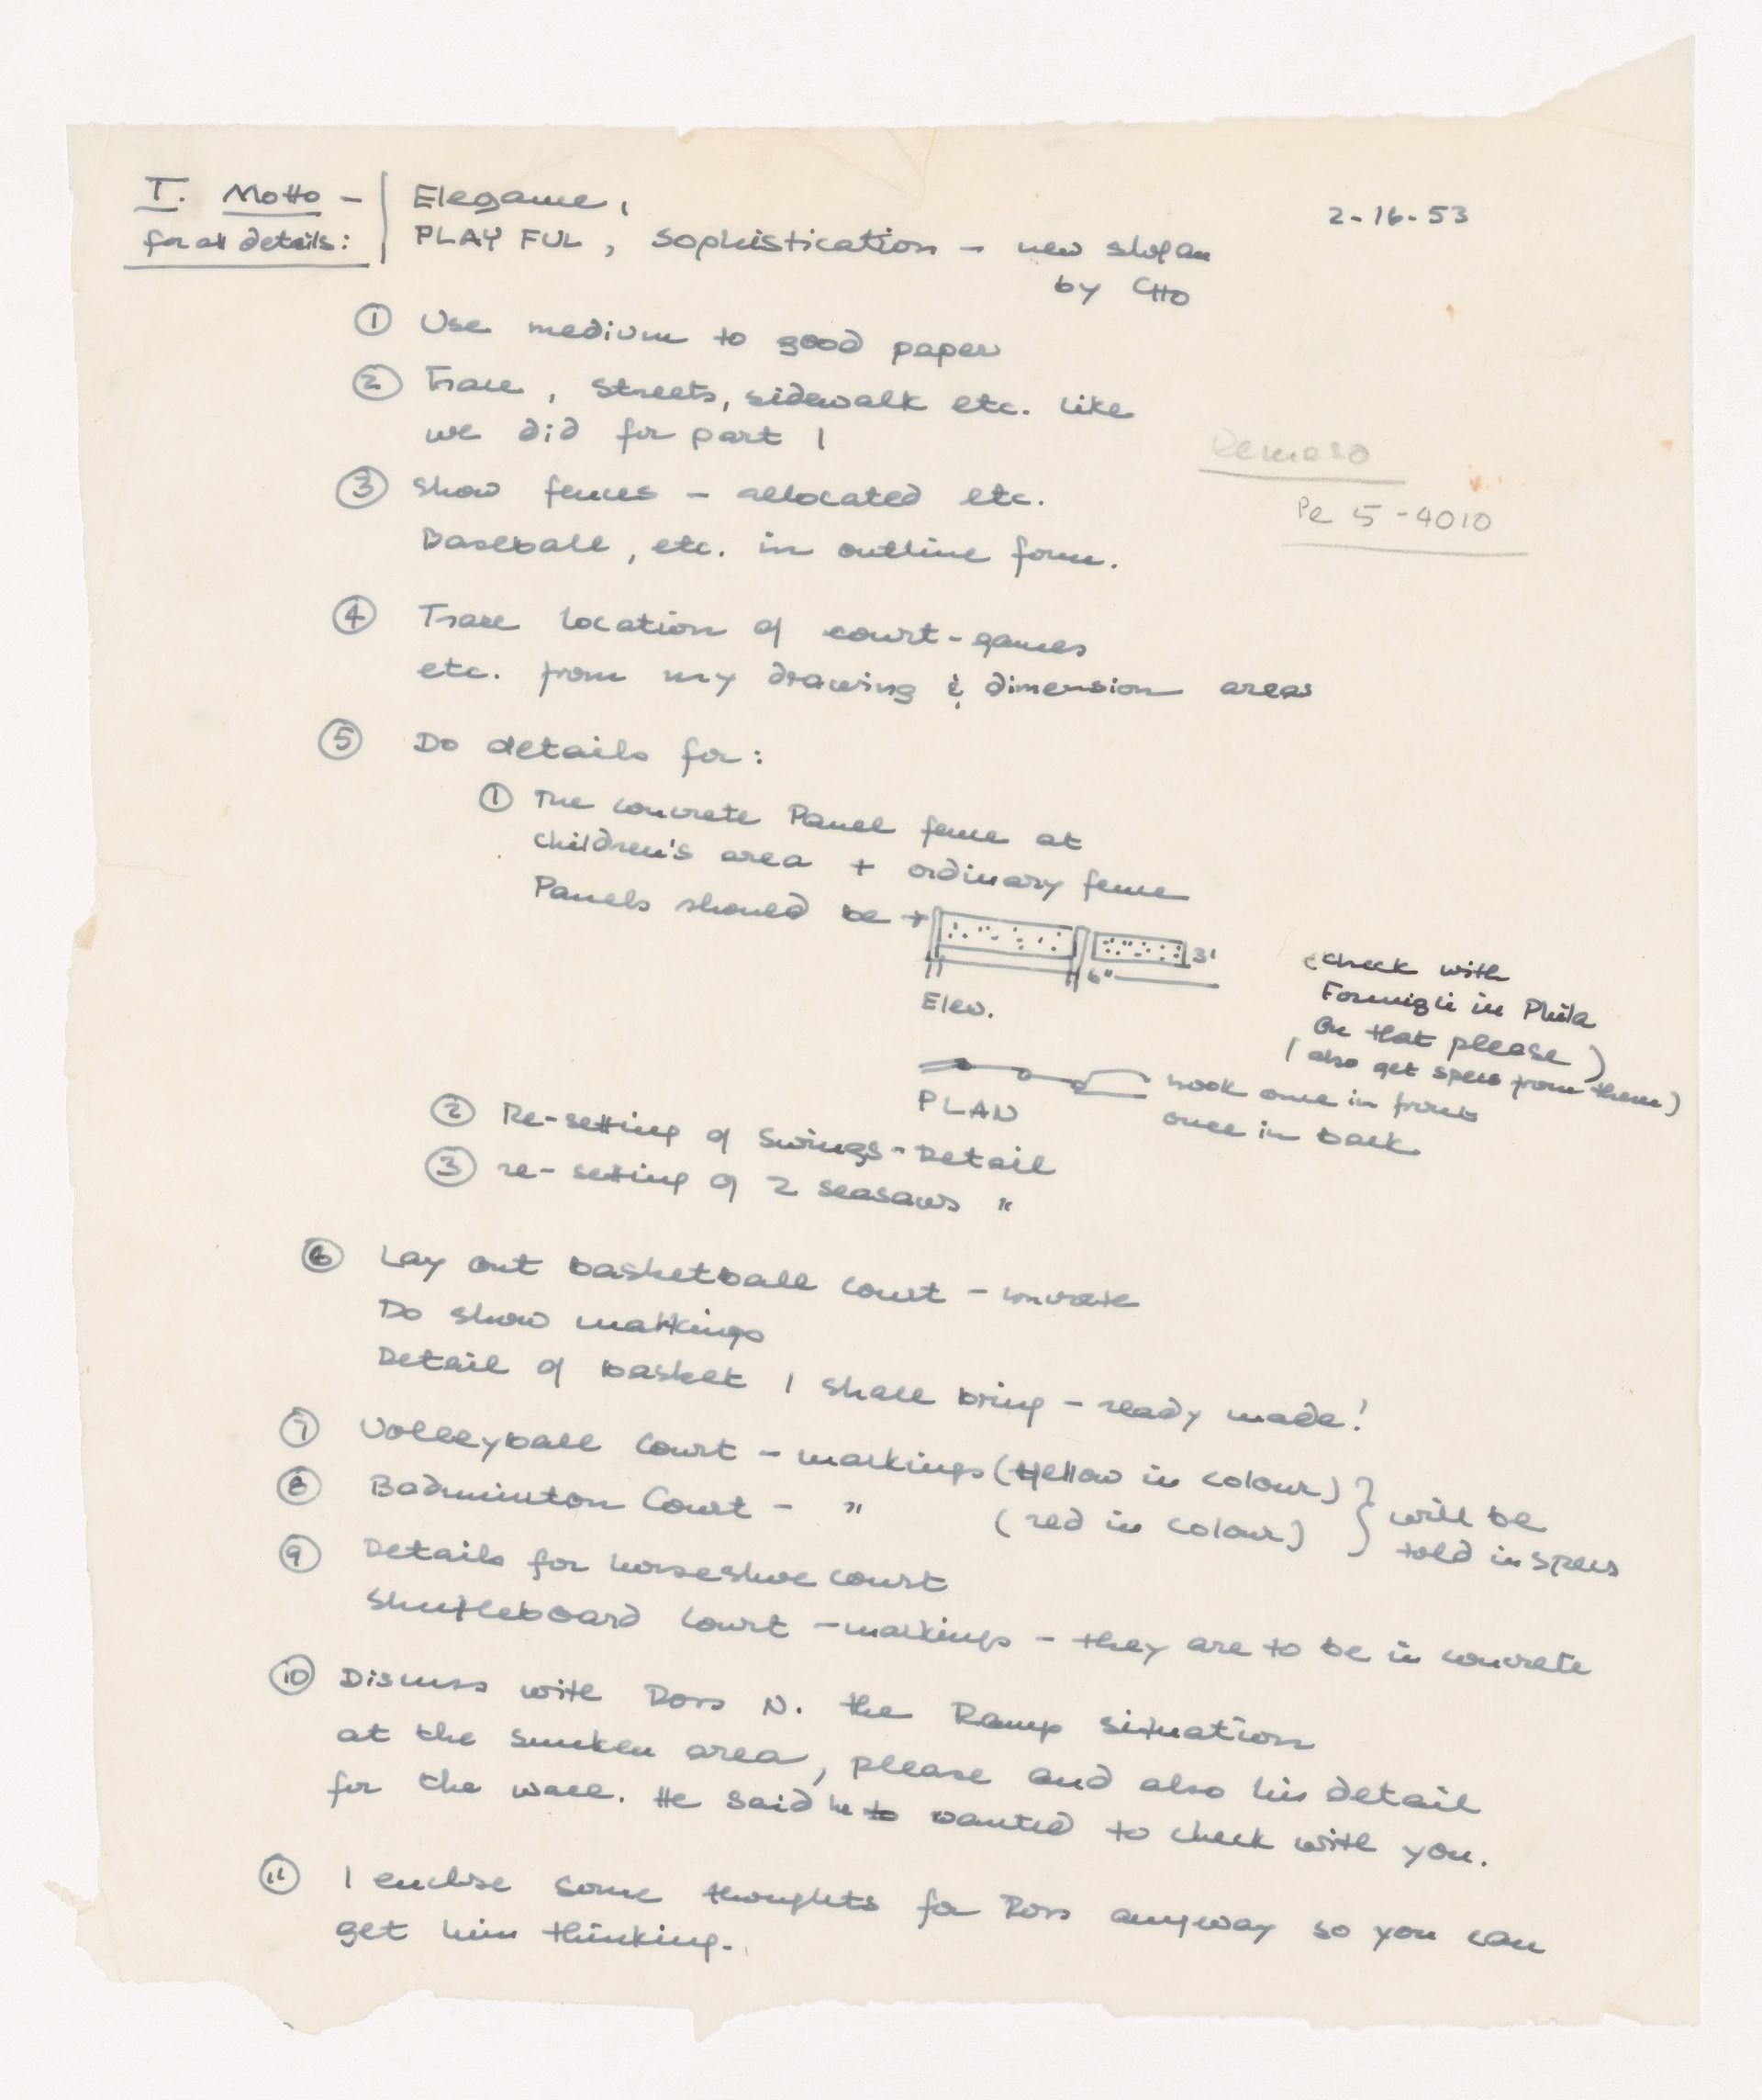 I. Motto - Elegance,
2-16-53
for all details: PLAYFUL, Sophistication - new slogan
by CHO
① Use medium to good paper
② Trace, streets, sidewalk etc. like
we did for part 1
③ Show fences - allocated etc.
Baseball, etc. in outline form.
Pe 5-4010
④ Trace location of court-games
etc. from my drawing & dimension areas
⑤ Do details for:
① The concrete Panel fence at
children's area + ordinary fence
Panels should be
3'
6"
Elev.
(check with
Formigli in Phila
on that please)
(also get specs from them)
hook once in front
PLAN
once in back
② Re-setting of Swings - Detail
③ re-setting of 2 seasaws "
⑥ Lay out basketball court - concrete
Do show markings
Detail of basket I shall bring - ready made!
⑦ Volleyball Court - markings (yellow in colour) } will be
⑧ Badminton Court - " (red in colour) } told in specs
⑨ Details for horseshoe court
Shuffleboard Court - markings - they are to be in concrete
⑩ Discuss with Ross N. the Ramp situation
at the sunken area, please and also his detail
for the wall. He said he to wanted to check with you.
⑪ I enclose some thoughts for Ross anyway so you can
get him thinking.